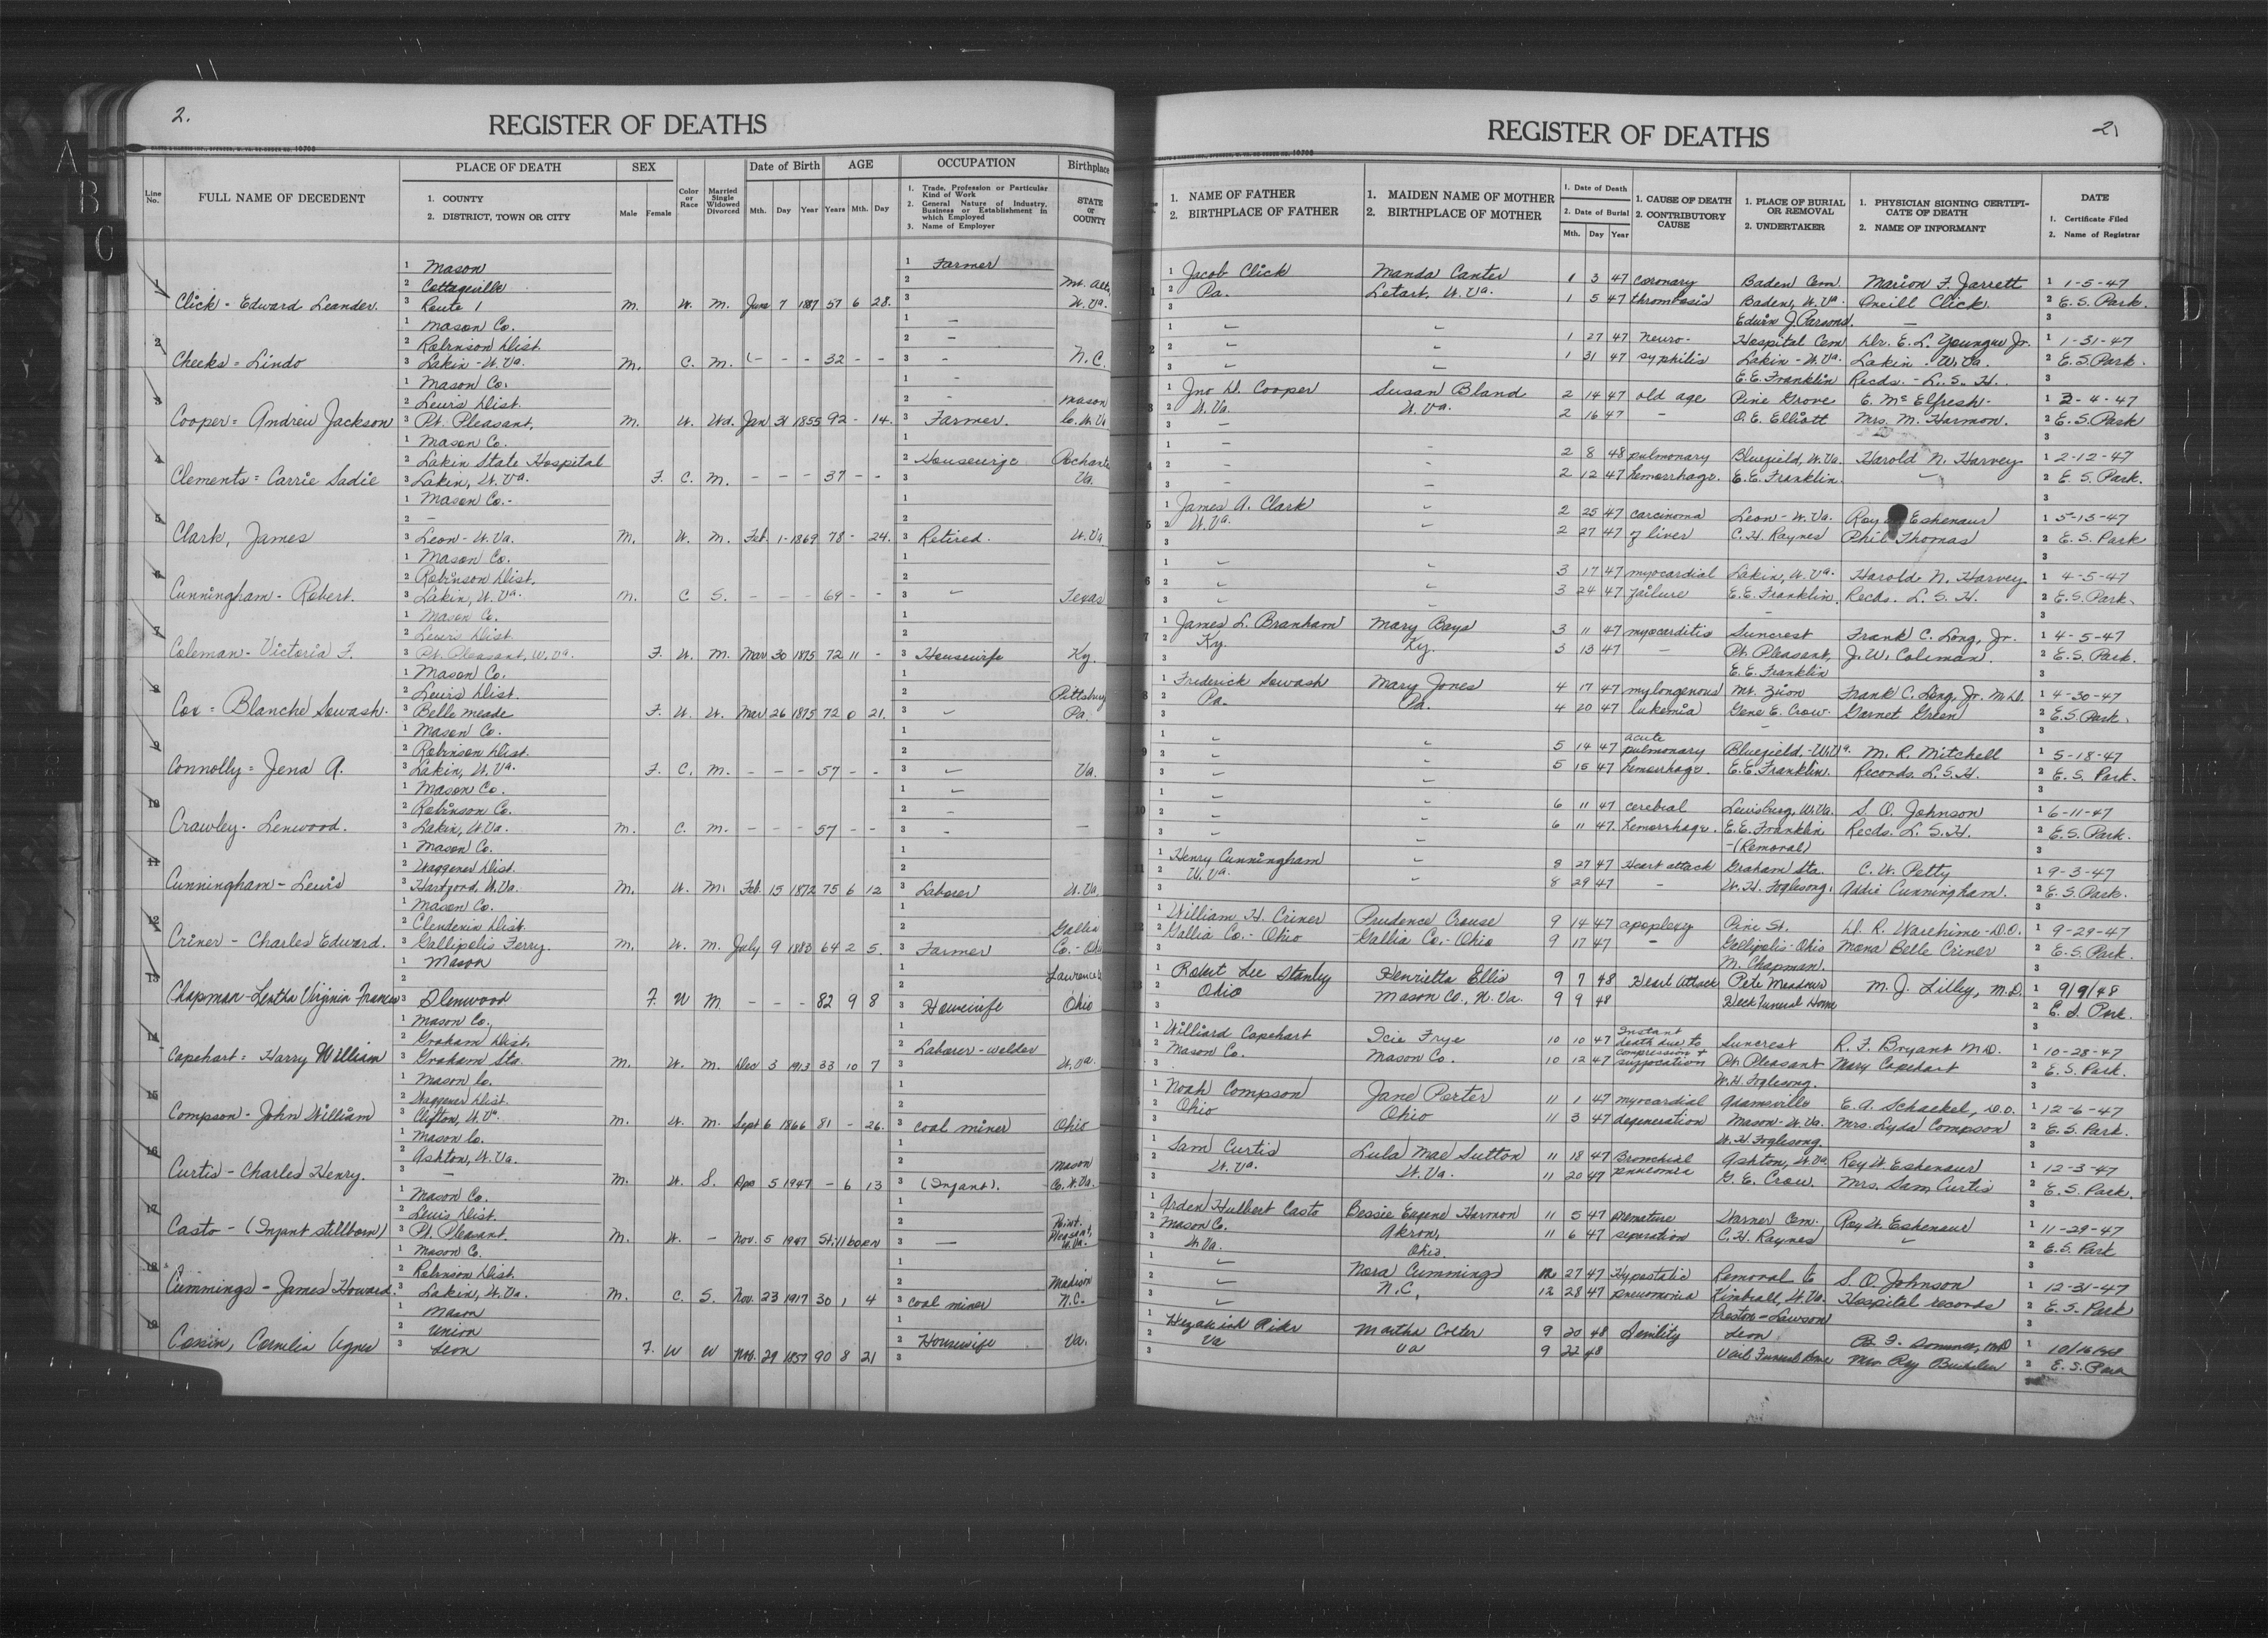 A
B
C
D
2.
REGISTER OF DEATHS
Line No.
FULL NAME OF DECEDENT
PLACE OF DEATH
1. COUNTY
2. DISTRICT, TOWN OR CITY
SEX
Male Female
Color or Race
Married Single Widowed Divorced
Date of Birth
Mth. Day Year
AGE
Years Mth. Day
OCCUPATION
1. Trade, Profession or Particular Kind of Work
2. General Nature of Industry, Business or Establishment in which Employed
3. Name of Employer
Birthplace
STATE or COUNTY
1 Mason 1 Farmer
2 Cottageville 2 Mt. Alto
1 Click - Edward Leander. 3 Route 1 M. W. M. June 7 1887 57 6 28. 3 W. Va.
1 Mason Co. 1 -
2 Robinson Dist. 2 -
2 Cheeks = Lindo 3 Lakin - W. Va. M. C. M. - - - 32 - - 3 - N.C.
1 Mason Co. 1 -
2 Lewis Dist. 2 - Mason
3 Cooper = Andrew Jackson 3 Pt. Pleasant, M. W. Wd. Jan 31 1855 92 - 14. 3 Farmer. Co. W. Va
1 Mason Co. 1
2 Lakin State Hospital 2 Housewife
4 Clements = Carrie Sadie 3 Lakin, W. Va. F. C. M. - - - 37 - - 3 Va.
1 Mason Co.- 1
2 - 2
5 Clark, James 3 Leon - W. Va. M. W. M. Feb. 1- 1869 78 - 24. 3 Retired. W. Va
1 Mason Co. 1
2 Robinson Dist. 2
6 Cunningham - Robert. 3 Lakin, W. Va. M. C S. - - - 69 - - 3 - Texas
1 Mason Co. 1
2 Lewis Dist. 2
7 Coleman - Victoria F. 3 Pt. Pleasant, W. Va. F. W. M. Mar 30 1875 72 11 - 3 Housewife Ky.
1 Mason Co. 1
2 Lewis Dist. 2 Pittsburg
8 Cox = Blanche Sowash. 3 Belle meade F. W. W. Mar 26 1875 72 0 21. 3 - Pa.
1 Mason Co. 1
2 Robinson Dist. 2
9 Connolly = Jena A. 3 Lakin, W. Va. F. C. M. - - - 57 - - 3 - Va.
1 Mason Co. 1 -
2 Robinson Co. 2 -
10 Crawley - Lenwood. 3 Lakin, W. Va. M. C. M. - - - 57 - - 3 - -
1 Mason Co. 1
2 Waggener Dist. 2
11 Cunningham - Lewis 3 Hartford, W. Va. M. W. M. Feb. 15 1872 75 6 12 3 Laborer W. Va.
1 Mason Co. 1
2 Clendenin Dist. 2 Gallia
12 Criner - Charles Edward. 3 Gallipolis Ferry. M. W. M. July 9 1883 64 2 5. 3 Farmer Co. - Oh
1 Mason 1 Lawrence
2 2
13 Chapman - Lestha Virginia Frances 3 Glenwood F. W M. - - - 82 9 8 3 Housewife Ohio
1 Mason Co. 1
2 Graham Dist. 2 Laborer - welder
14 Capehart = Harry William 3 Graham Sta. M. W. M. Dec 3 1913 33 10 7 3 W. Va.
1 Mason Co. 1
2 Waggener Dist. 2
15 Compson - John William 3 Clifton, W. Va. M. W. M. Sept 6 1866 81 - 26. 3 coal miner Ohio
1 Mason Co. 1
2 Ashton, W. Va. 2 Mason
16 Curtis - Charles Henry. 3 - M. W. S. Apr 5 1947 - 6 13 3 (Infant). Co. W. Va.
1 Mason Co. 1
2 Lewis Dist. 2 Point
17 Casto - (Infant stillborn) 3 Pt. Pleasant. M. W. - Nov. 5 1947 Stillborn 3 - Pleasant, W. Va.
1 Mason Co. 1
2 Robinson Dist. 2 Madison
18 Cummings - James Howard. 3 Lakin, W. Va. M. C. S. Nov. 23 1917 30 1 4 3 coal miner N.C.
1 Mason 1
2 Union 2 Housewife Va.
19 Cornelia Agnes 3 Leon F. W W Nov. 29 1857 90 8 21 3
REGISTER OF DEATHS
2
1. NAME OF FATHER
2. BIRTHPLACE OF FATHER
1. MAIDEN NAME OF MOTHER
2. BIRTHPLACE OF MOTHER
1. Date of Death
2. Date of Burial
Mth. Day Year
1. CAUSE OF DEATH
2. CONTRIBUTORY CAUSE
1. PLACE OF BURIAL OR REMOVAL
2. UNDERTAKER
1. PHYSICIAN SIGNING CERTIFICATE OF DEATH
2. NAME OF INFORMANT
DATE
1. Certificate Filed
2. Name of Registrar
1 Jacob Click Manda Canter 1 3 47 coronary Baden Cem. Marion F. Jarrett 1 1-5-47
2 Pa. Letart, W. Va. 1 5 47 thrombosis Baden, W. Va. Oneill Click. 2 E. S. Park.
3 Edwin J. Parsons. - 3
1 - - 1 27 47 neuro- Hospital Cem Dr. E. L. Youngue Jr. 1 1-31-47
2 - - 1 31 47 syphilis Lakin - W. Va. Lakin - W. Va. 2 E. S. Park.
3 - - E. E. Franklin Recds. - L. S. H. 3
1 Jno D. Cooper Susan Bland 2 14 47 old age Pine Grove E. McElfresh - 1 3-4-47
2 W. Va. W. Va. 2 16 47 - O. E. Elliott Mrs. M. Harmon. 2 E. S. Park
3 - 3
1 - - 2 8 48 pulmonary Bluefield, W. Va. Harold N. Harvey 1 2-12-47
2 - - 2 12 47 hemorrhage. E. E. Franklin. - 2 E. S. Park.
3 - - 3
1 James A. Clark - 2 25 47 carcinoma Leon - W. Va. Roy Eshenaur 1 5-13-47
2 W. Va. - 2 27 47 of liver C. H. Raynes Phil Thomas 2 E. S. Park
3 3
1 - - 3 17 47 myocardial Lakin, W. Va. Harold N. Harvey 1 4-5-47
2 - - 3 24 47 failure E. E. Franklin. Recds. L. S. H. 2 E. S. Park.
3 - - - 3
1 James L. Branham Mary Bays 3 11 47 myocarditis Suncrest Frank C. Long, Jr. 1 4-5-47
2 Ky. Ky. 3 13 47 - Pt. Pleasant, J. W. Coleman. 2 E. S. Park.
3 E. E. Franklin 3
1 Frederick Sowash Mary Jones 4 17 47 mylongenous Mt. Zion Frank C. Long, Jr. M.D. 1 4-30-47
2 Pa. Pa. 4 20 47 lukemia Gene E. Crow. Garnet Green 2 E. S. Park.
3 - 3
1 - - 5 14 47 acute pulmonary Bluefield, - W. Va. M. R. Mitchell 1 5-18-47
2 - - 5 15 47 hemorrhage. E. E. Franklin. Records. L. S. H. 2 E. S. Park.
3 - - 3
1 - - 6 11 47 cerebial Lewisburg, W. Va. S. O. Johnson 1 6-11-47
2 - - 6 11 47. hemorrhage. E. E. Franklin Recds. L. S. H. 2 E. S. Park.
3 - - -(Removal) 3
1 Henry Cunningham - 8 27 47 Heart attack Graham Sta. C. W. Petty 1 9-3-47
2 W. Va. - 8 29 47 - W. H. Foglesong. Addie Cunningham. 2 E. S. Park.
3 3
1 William H. Criner Prudence Crouse 9 14 47 apoplexy Pine St. D. R. Warehime - D.O. 1 9-29-47
2 Gallia Co. - Ohio Gallia Co. - Ohio 9 17 47 - Gallipolis - Ohio Mona Belle Criner 2 E. S. Park.
3 M. Chapman. 3
1 Robert Lee Stanley Henrietta Ellis 9 7 48 Heart Attack Pete Meadows M. J. Lilley, M.D. 1 9/9/48
2 Ohio Mason Co., W. Va. 9 9 48 Funeral Home 2 E. S. Park.
3 3
1 Williard Capehart Icie Frye 10 10 47 Instant death due to Suncrest R. F. Bryant M.D. 1 10-28-47
2 Mason Co. Mason Co. 10 12 47 compression + suffocation Pt. Pleasant Mary Capehart 2 E. S. Park.
3 W. H. Foglesong. 3
1 Noah Compson Jane Porter 11 1 47 myocardial Adamsville E. A. Schaekel, D.O. 1 12-6-47
2 Ohio Ohio 11 3 47 degeneration Mason - W. Va. Mrs. Lyda Compson 2 E. S. Park.
3 W. H. Foglesong. 3
1 Sam Curtis Lula Mae Sutton 11 18 47 Bronchial Ashton, W. Va. Roy W. Eshenaur 1 12-3-47
2 W. Va. W. Va. 11 20 47 pneumonia G. E. Crow. Mrs. Sam Curtis 2 E. S. Park.
3 3
1 Arden Hulbert Casto Bessie Eugene Harmon 11 5 47 premature Warner Cem. Roy W. Eshenaur 1 11-29-47
2 Mason Co. Akron, 11 6 47 seperation C. H. Raynes - 2 E. S. Park
3 W. Va. Ohio. 3
1 - Nora Cummings 12 27 47 Hypostatic Removal to S. O. Johnson 1 12-31-47
2 - N.C. 12 28 47 pneumonia Kimball, W. Va. Hospital records 2 E. S. Park
3 - Preston - Lawson 3
1 Hezakiah Rider Martha Colter 9 20 48 Senility Leon 1
2 Va Va 9 22 48 Vail Funeral Home Mrs Roy 2 E. S. Park
3